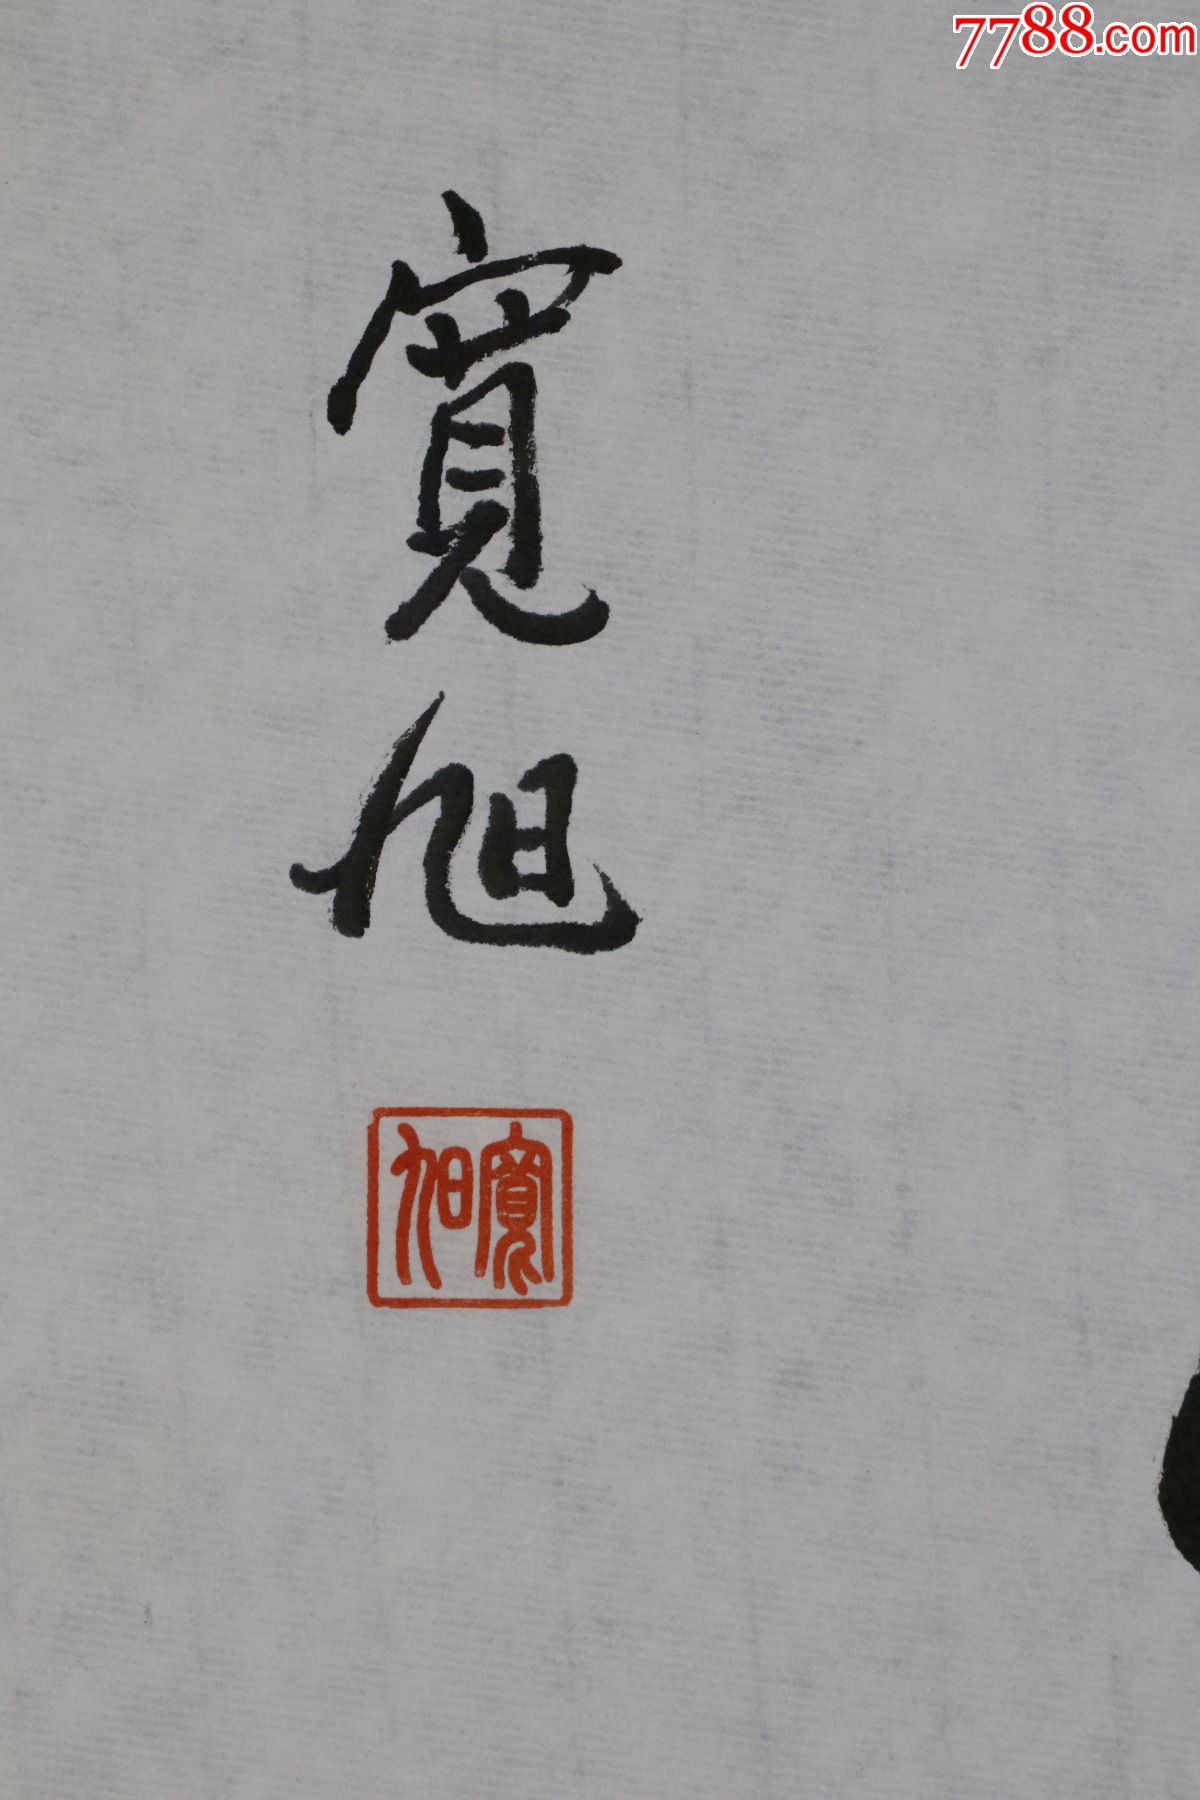 7788.com
寬旭
寬旭